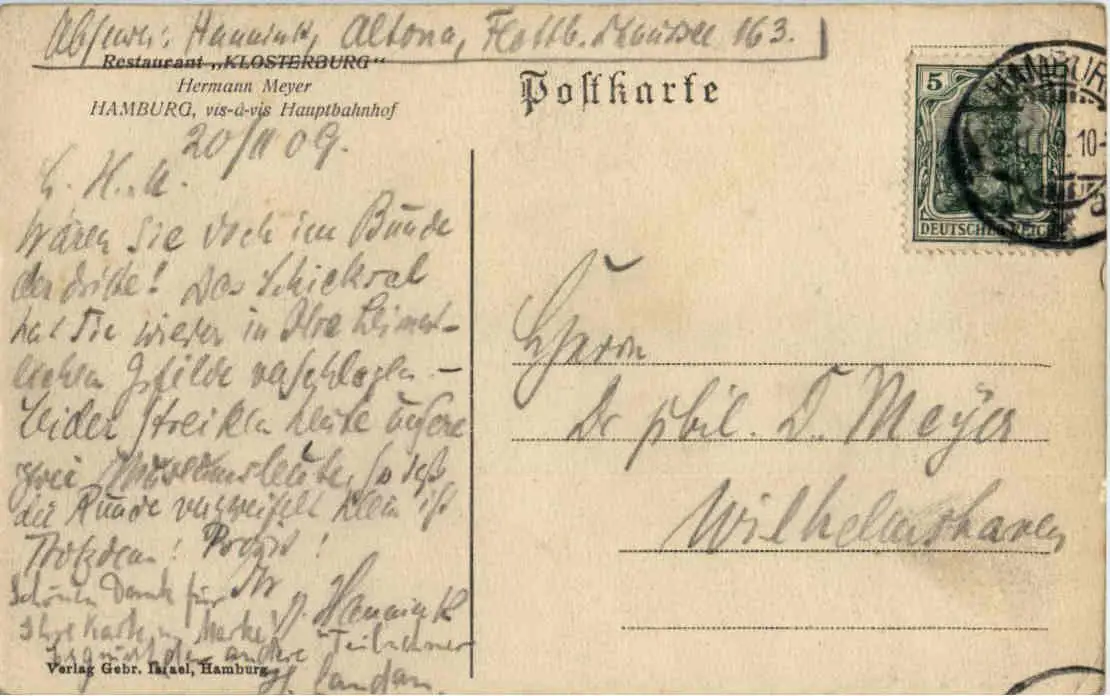 Absender: Hannink, Altona, Flottb. Chaussee 163.
Restaurant „KLOSTERBURG“
Hermann Meyer
HAMBURG, vis-à-vis Hauptbahnhof
20/11 09.
Wären Sie doch im Bunde
der dritte! Das Schicksal
hat Sie wieder in Ihre heimat-
lichen Gefilde verschlagen –
Leider streiken heute unsere
zwei Museumsleute, so daß
die Runde verzweifelt klein ist
Trotzdem! Prosit!
Ihr
Hannink
Schönen Dank für
Ihre Karte u. Marke!
der andere Teilnehmer
Landau.
Verlag Gebr. Israel, Hamburg
Postkarte
5
DEUTSCHES REICH
HAMBURG
10-
Herrn
Dr phil. D. Meyer
Wilhelmshaven